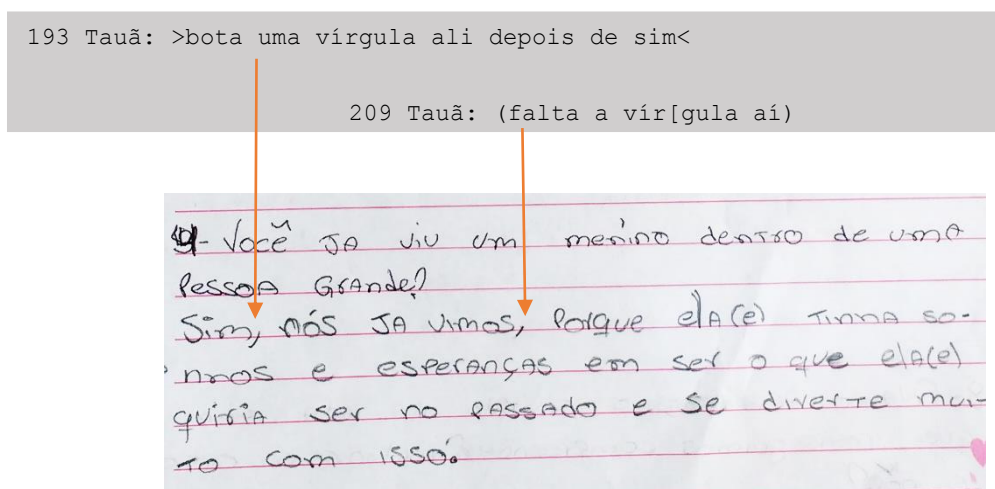 193 Tauã: >bota uma vírgula ali depois de sim<
209 Tauã: (falta a vír[gula aí)
9- Você JA viu um menino dentro de uma
Pessoa Grande?
Sim, nós JA vimos, Porque ela(e) Tinha so-
nhos e esperanças em ser o que ela(e)
quiria ser no passado e se diverte mui-
to com isso.